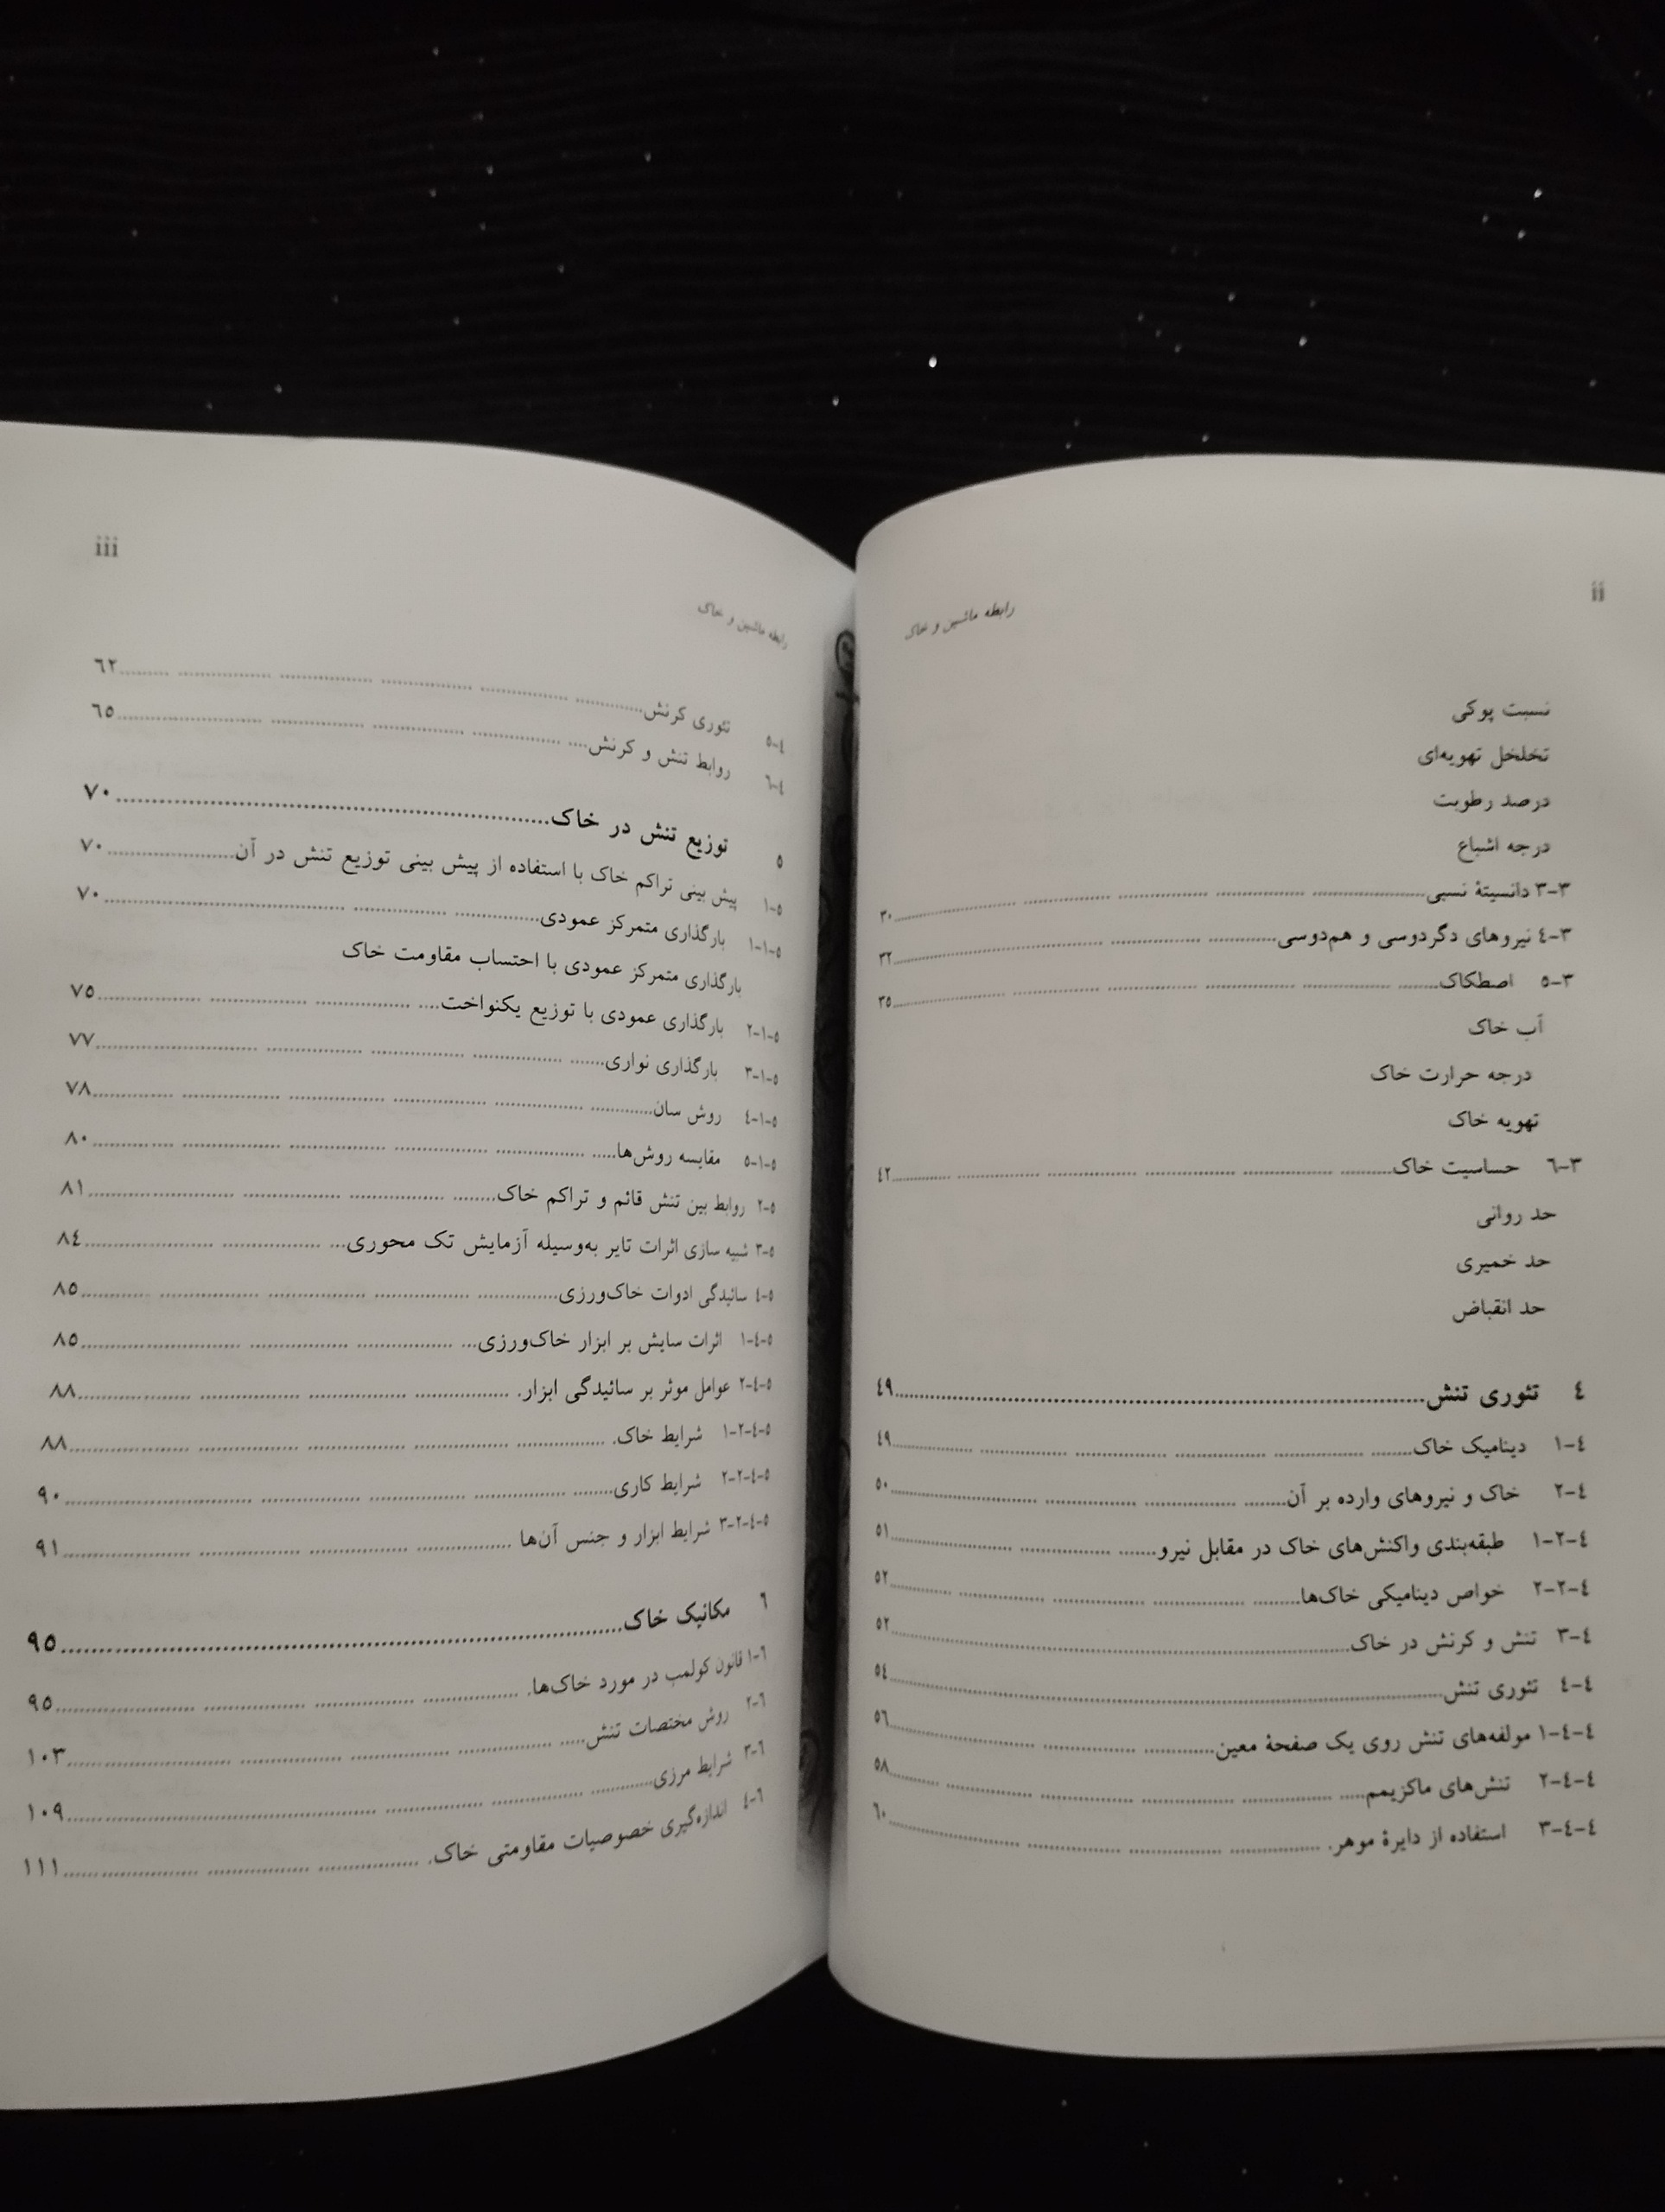 ii
رابطه ماشین و خاک
نسبت پوکی
تخلخل تهویه‌ای
درصد رطوبت
درجه اشباع
۳-۳ دانسیتهٔ نسبی........................ ۳۰
۳-٤ نیروهای دگردوسی و هم‌دوسی........................ ۳۲
۳-٥ اصطکاک........................ ۳٥
آب خاک
درجه حرارت خاک
تهویه خاک
۳-٦ حساسیت خاک........................ ٤۲
حد روانی
حد خمیری
حد انقباض
٤ تئوری تنش........................ ٤۹
٤-۱ دینامیک خاک........................ ٤۹
٤-۲ خاک و نیروهای وارده بر آن........................ ٥۰
٤-۲-۱ طبقه‌بندی واکنش‌های خاک در مقابل نیرو........................ ٥۱
٤-۲-۲ خواص دینامیکی خاک‌ها........................ ٥۲
٤-۳ تنش و کرنش در خاک........................ ٥۲
٤-٤ تئوری تنش........................ ٥٤
٤-٤-۱ مولفه‌های تنش روی یک صفحهٔ معین........................ ٥٦
٤-٤-۲ تنش‌های ماکزیمم........................ ٥۸
٤-٤-۳ استفاده از دایرهٔ موهر........................ ٦۰
iii
رابطه ماشین و خاک
٤-٥ تئوری کرنش........................ ٦۲
٤-٦ روابط تنش و کرنش........................ ٦٥
٥ توزیع تنش در خاک........................ ۷۰
٥-۱ پیش بینی تراکم خاک با استفاده از پیش بینی توزیع تنش در آن........................ ۷۰
٥-۱-۱ بارگذاری متمرکز عمودی........................ ۷۰
بارگذاری متمرکز عمودی با احتساب مقاومت خاک
٥-۱-۲ بارگذاری عمودی با توزیع یکنواخت........................ ۷٥
٥-۱-۳ بارگذاری نواری........................ ۷۷
٥-۱-٤ روش سان........................ ۷۸
٥-۱-٥ مقایسه روش‌ها........................ ۸۰
٥-۲ روابط بین تنش قائم و تراکم خاک........................ ۸۱
٥-۳ شبیه سازی اثرات تایر به‌وسیله آزمایش تک محوری........................ ۸٤
٥-٤ سائیدگی ادوات خاک‌ورزی........................ ۸٥
٥-٤-۱ اثرات سایش بر ابزار خاک‌ورزی........................ ۸٥
٥-٤-۲ عوامل موثر بر سائیدگی ابزار........................ ۸۸
٥-٤-۲-۱ شرایط خاک........................ ۸۸
٥-٤-۲-۲ شرایط کاری........................ ۹۰
٥-٤-۲-۳ شرایط ابزار و جنس آن‌ها........................ ۹۱
٦ مکانیک خاک........................ ۹٥
٦-۱ قانون کولمب در مورد خاک‌ها........................ ۹٥
٦-۲ روش مختصات تنش........................ ۱۰۳
٦-۳ شرایط مرزی........................ ۱۰۹
٦-٤ اندازه‌گیری خصوصیات مقاومتی خاک........................ ۱۱۱